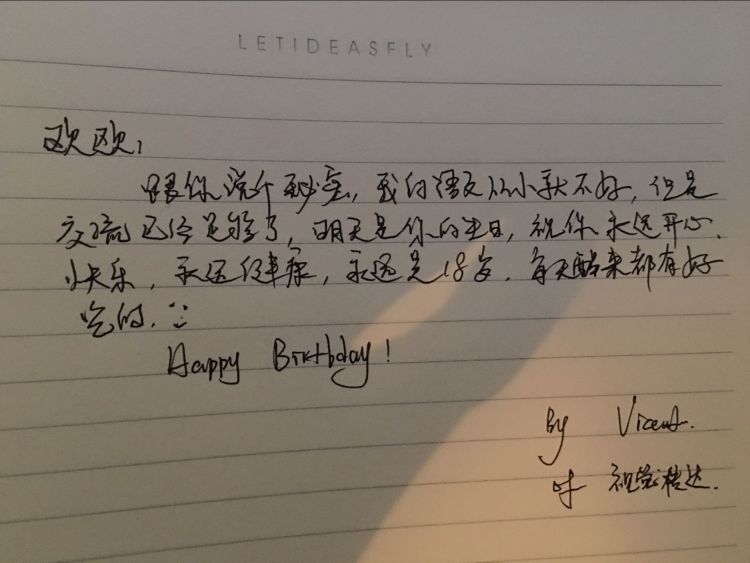 LETIDEASFLY
欧欧,
跟你说个秘密,我的语文从小就不好,但是
交流已经足够了,明天是你的生日,祝你永远开心、
快乐,永远健康,永远是18岁,每天醒来都有好
吃的.
Happy Birthday!
By Vicent.
of 视觉表达.